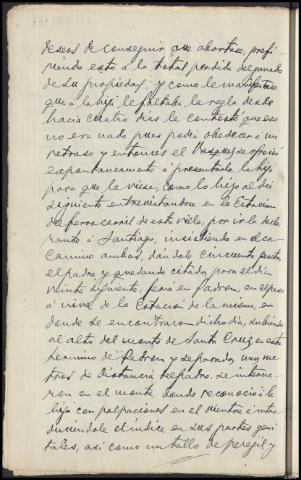 deseos de conseguir que abortase, prefi-
riendo esto a la total perdida del ganado
de su propiedad: y como le manifestase
que a la hija le faltaba la regla desde
hacia cuatro dias le contestó que eso
no era nada pues podia obedecer a un
retraso y entonces el Vazquez se ofreció
espontaneamente a presentarle la hija
para que la viese, como lo hizo al dia
siguiente entrevistandose en la Estacion
de ferrocarril de esta villa, por ir la decla-
rante a Santiago, insistiendo en el ca-
camino ambos, dandole cincuenta pesetas
el padre y quedando citada para el dia
veinte siguiente, pero en Padron, en el paso
a nivel de la Estacion de la misma, en
donde se encontraron dicho dia, subiendo
al alto del monte de Santa Cruz, en este
termino de Padron y separados unos me-
tros de distancia del padre, se interna-
ron en el monte, donde reconoció a la
hija con palpaciones en el vientre e intro-
duciendole el indice en sus partes geni-
tales, asi como un tallo de peregil y